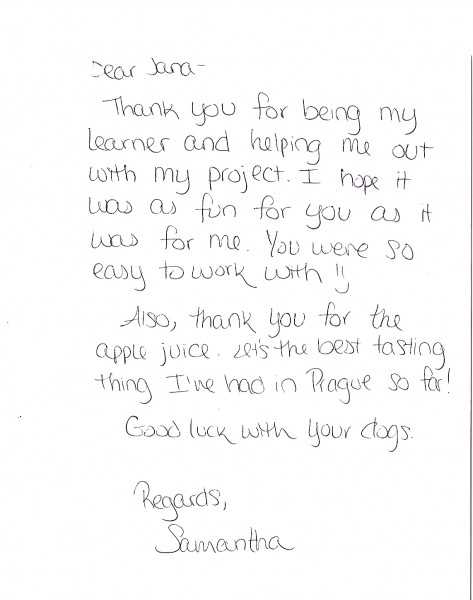 Dear Jana-
Thank you for being my
learner and helping me out
with my project. I hope it
was as fun for you as it
was for me. You were so
easy to work with !!
Also, thank you for the
apple juice. It's the best tasting
thing I've had in Prague so far!
Good luck with your dogs.
Regards,
Samantha